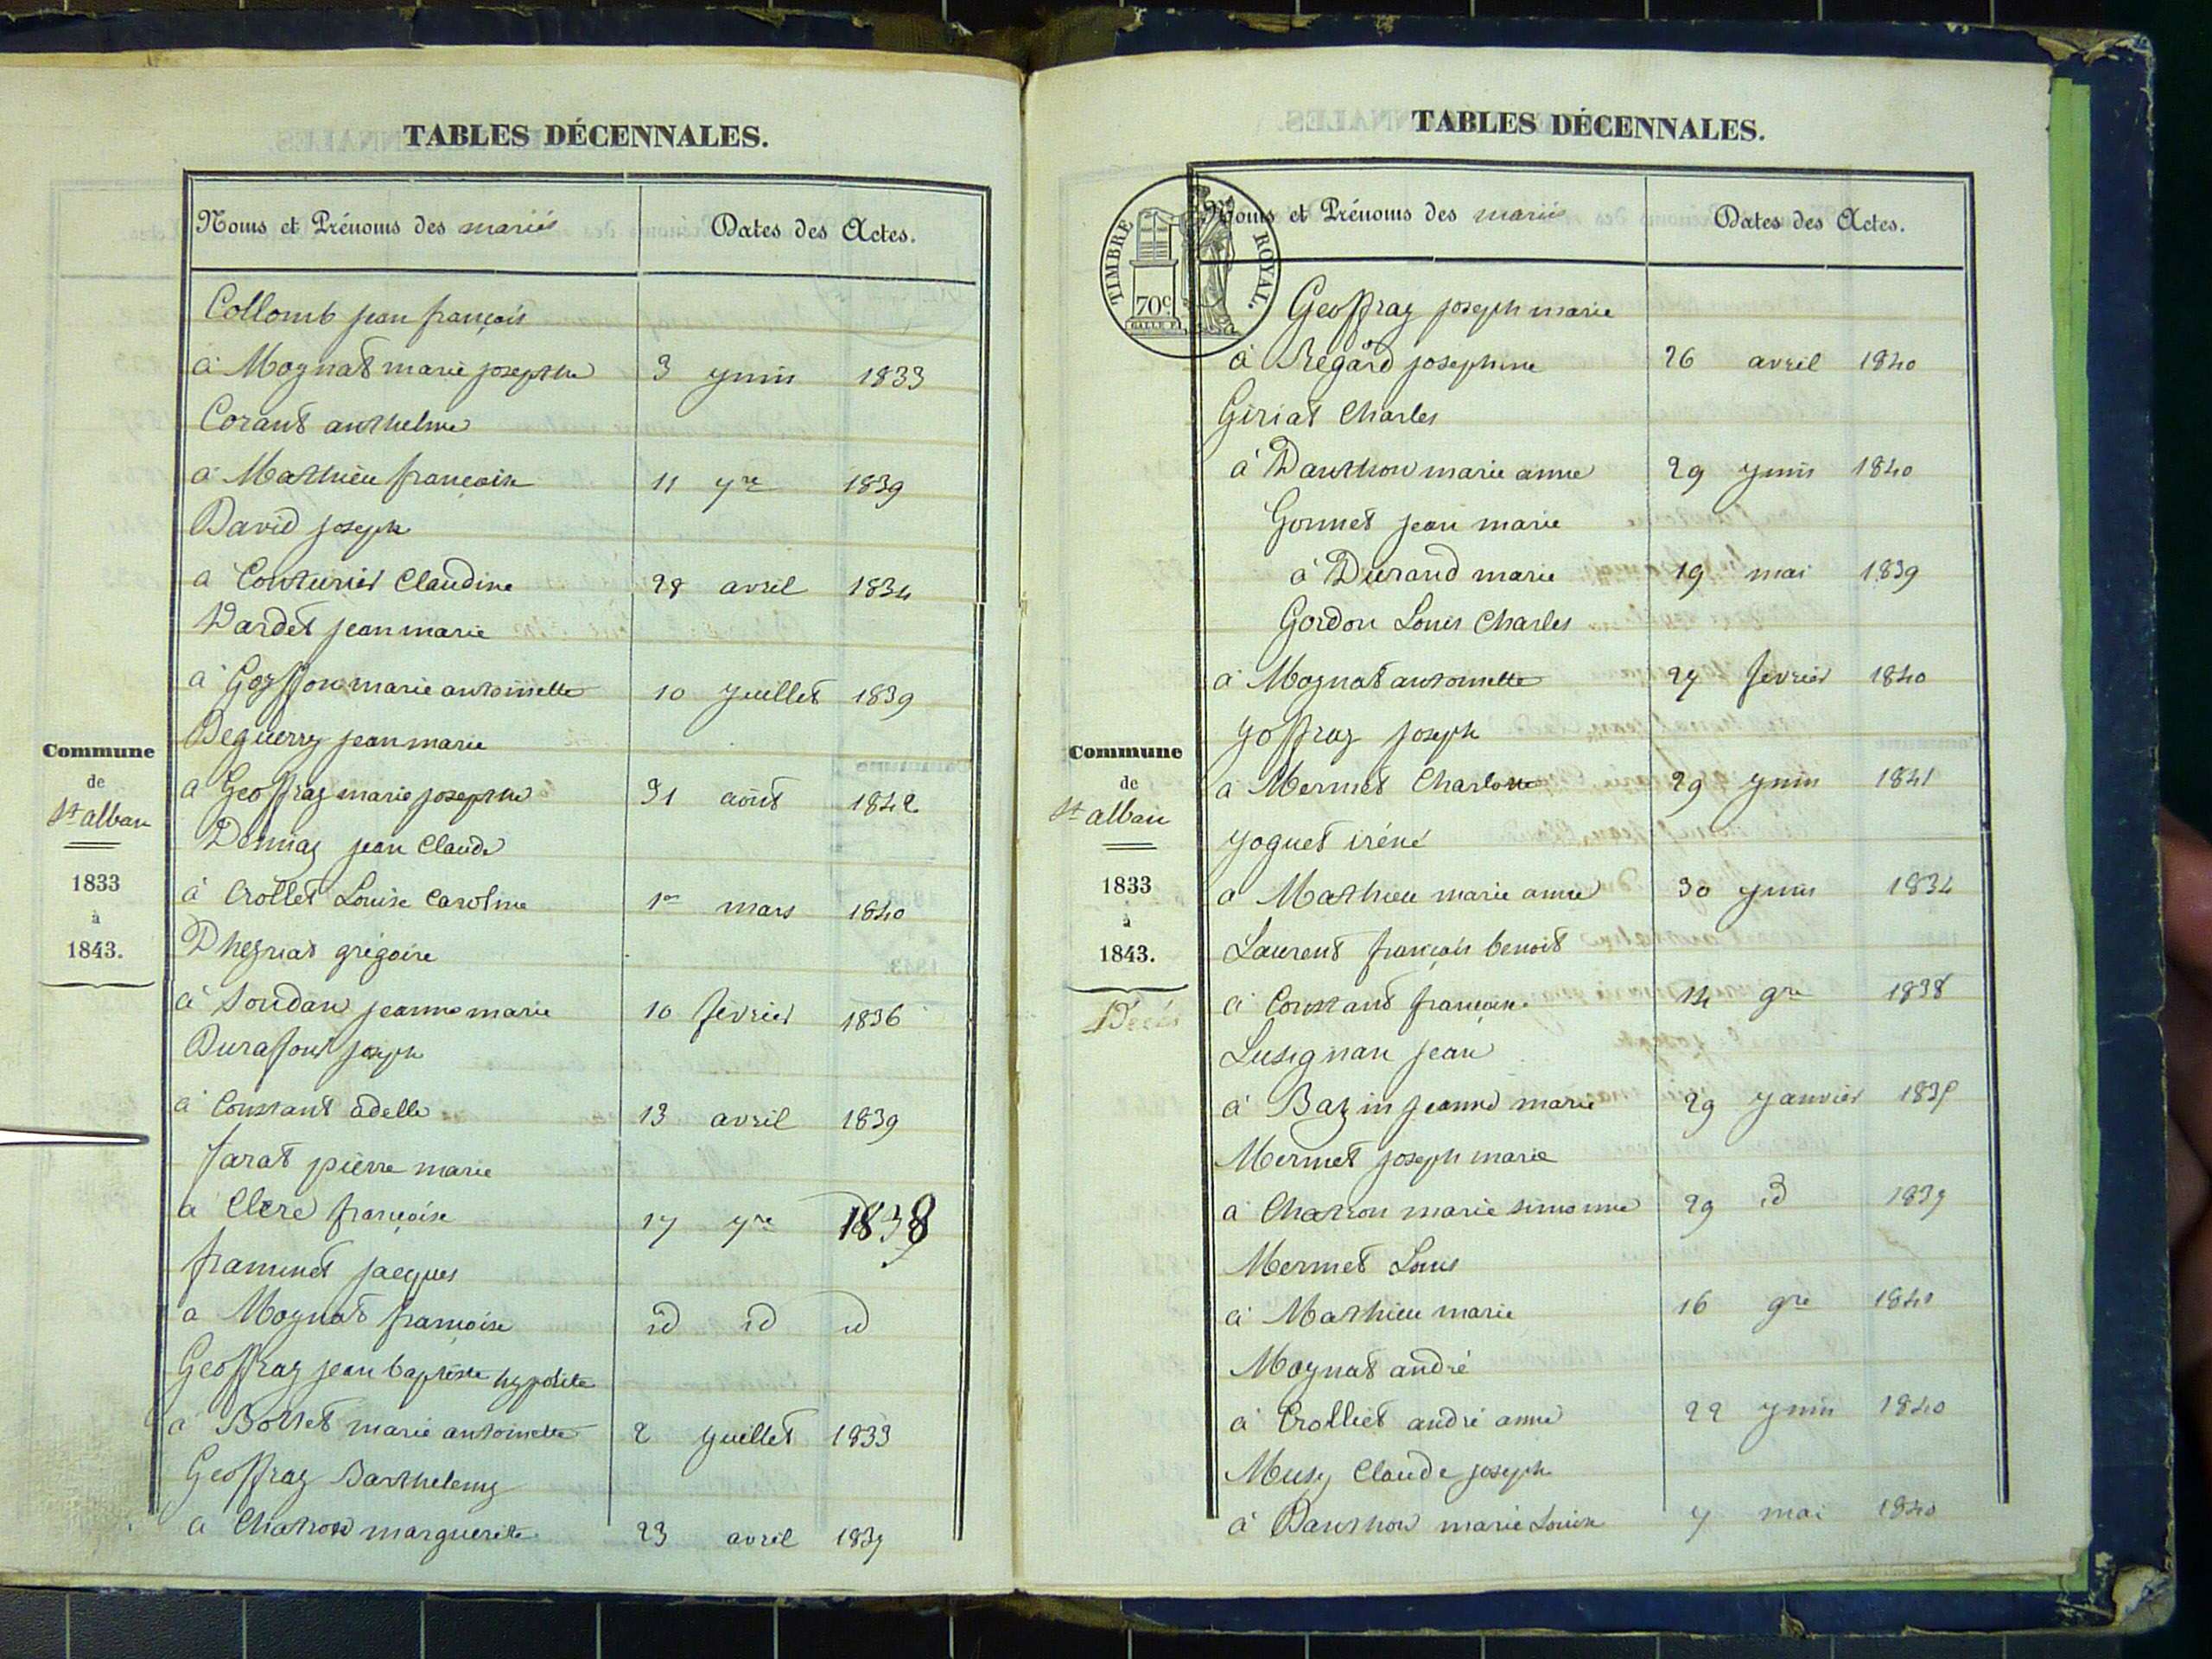 TABLES DÉCENNALES.
Noms et Prénoms des mariés Dates des Actes.
Collomb jean françois
à Moynat marie josephte 3 juin 1833
Corant anthelme
à Mathieu françoise 11 7re 1839
David joseph
à Conturier Claudine 28 avril 1834
Dardet jean marie
à Goyffon marie antoinette 10 juillet 1839
Deguerry jean marie
à Geoffray marie josephte 31 août 1842
Demiaz jean Claude
à Crollet Louise Caroline 1er mars 1840
Dheyriat grégoire
à Soudan jeanne marie 10 février 1836
Durafour joseph
à Constant adelle 13 avril 1839
farat pierre marie
à Clere françoise 17 7re 1838
framinet jacques
à Moynat françoise id id id
Geoffray jean baptiste hypolite
à Bottet marie antoinette 2 juillet 1833
Geoffray Barthelemy
à Chatron marguerite 23 avril 1839
Commune
de
St alban
1833
à
1843.
TABLES DÉCENNALES.
TIMBRE ROYAL.
70c
Noms et Prénoms des mariés Dates des Actes.
Geoffray joseph marie
à Régard josephine 26 avril 1840
Giriat Charles
à Danthon marie anne 29 juin 1840
Gonnet jean marie
à Durand marie 19 mai 1839
Gordon Louis Charles
à Moynat antoinette 27 fevrier 1840
joffray joseph
à Mermet Charlotte 29 juin 1841
joguet iréné
à Mathieu marie anne 30 juin 1834
Laurent françois benoit
à Constant françoise 14 9re 1838
Lusignan jean
à Bazin jeanne marie 29 janvier 1839
Mermet joseph marie
à Chatron marie simonne 29 id 1839
Mermet Louis
à Mathieu marie 16 9re 1840
Moynat andré
à Crolliet andré anne 22 juin 1840
Musy Claude joseph
à Danthon marie Louise 7 mai 1840
Commune
de
St alban
1833
à
1843.
Décés